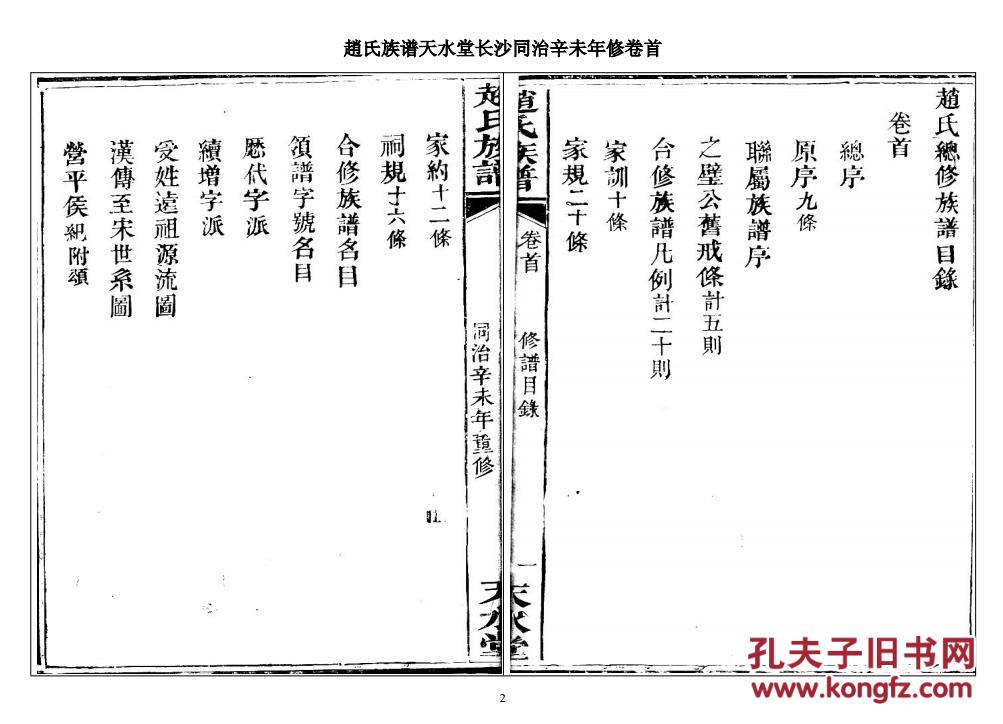 趙氏族谱天水堂长沙同治辛未年修卷首
趙氏總修族譜目錄
卷首
總序
原序九條
聯屬族譜序
之璧公舊戒條計五則
合修族譜凡例計二十則
家訓十條
家規二十條
趙氏族譜
卷首
修譜目錄
一
趙氏族譜
同治辛未年重修
天水堂
家約十二條
祠規十六條
合修族譜名目
領譜字號名目
歷代字派
續增字派
受姓遠祖源流圖
漢傳至宋世系圖
營平侯紀附頌
孔夫子旧书网
www.kongfz.com
2